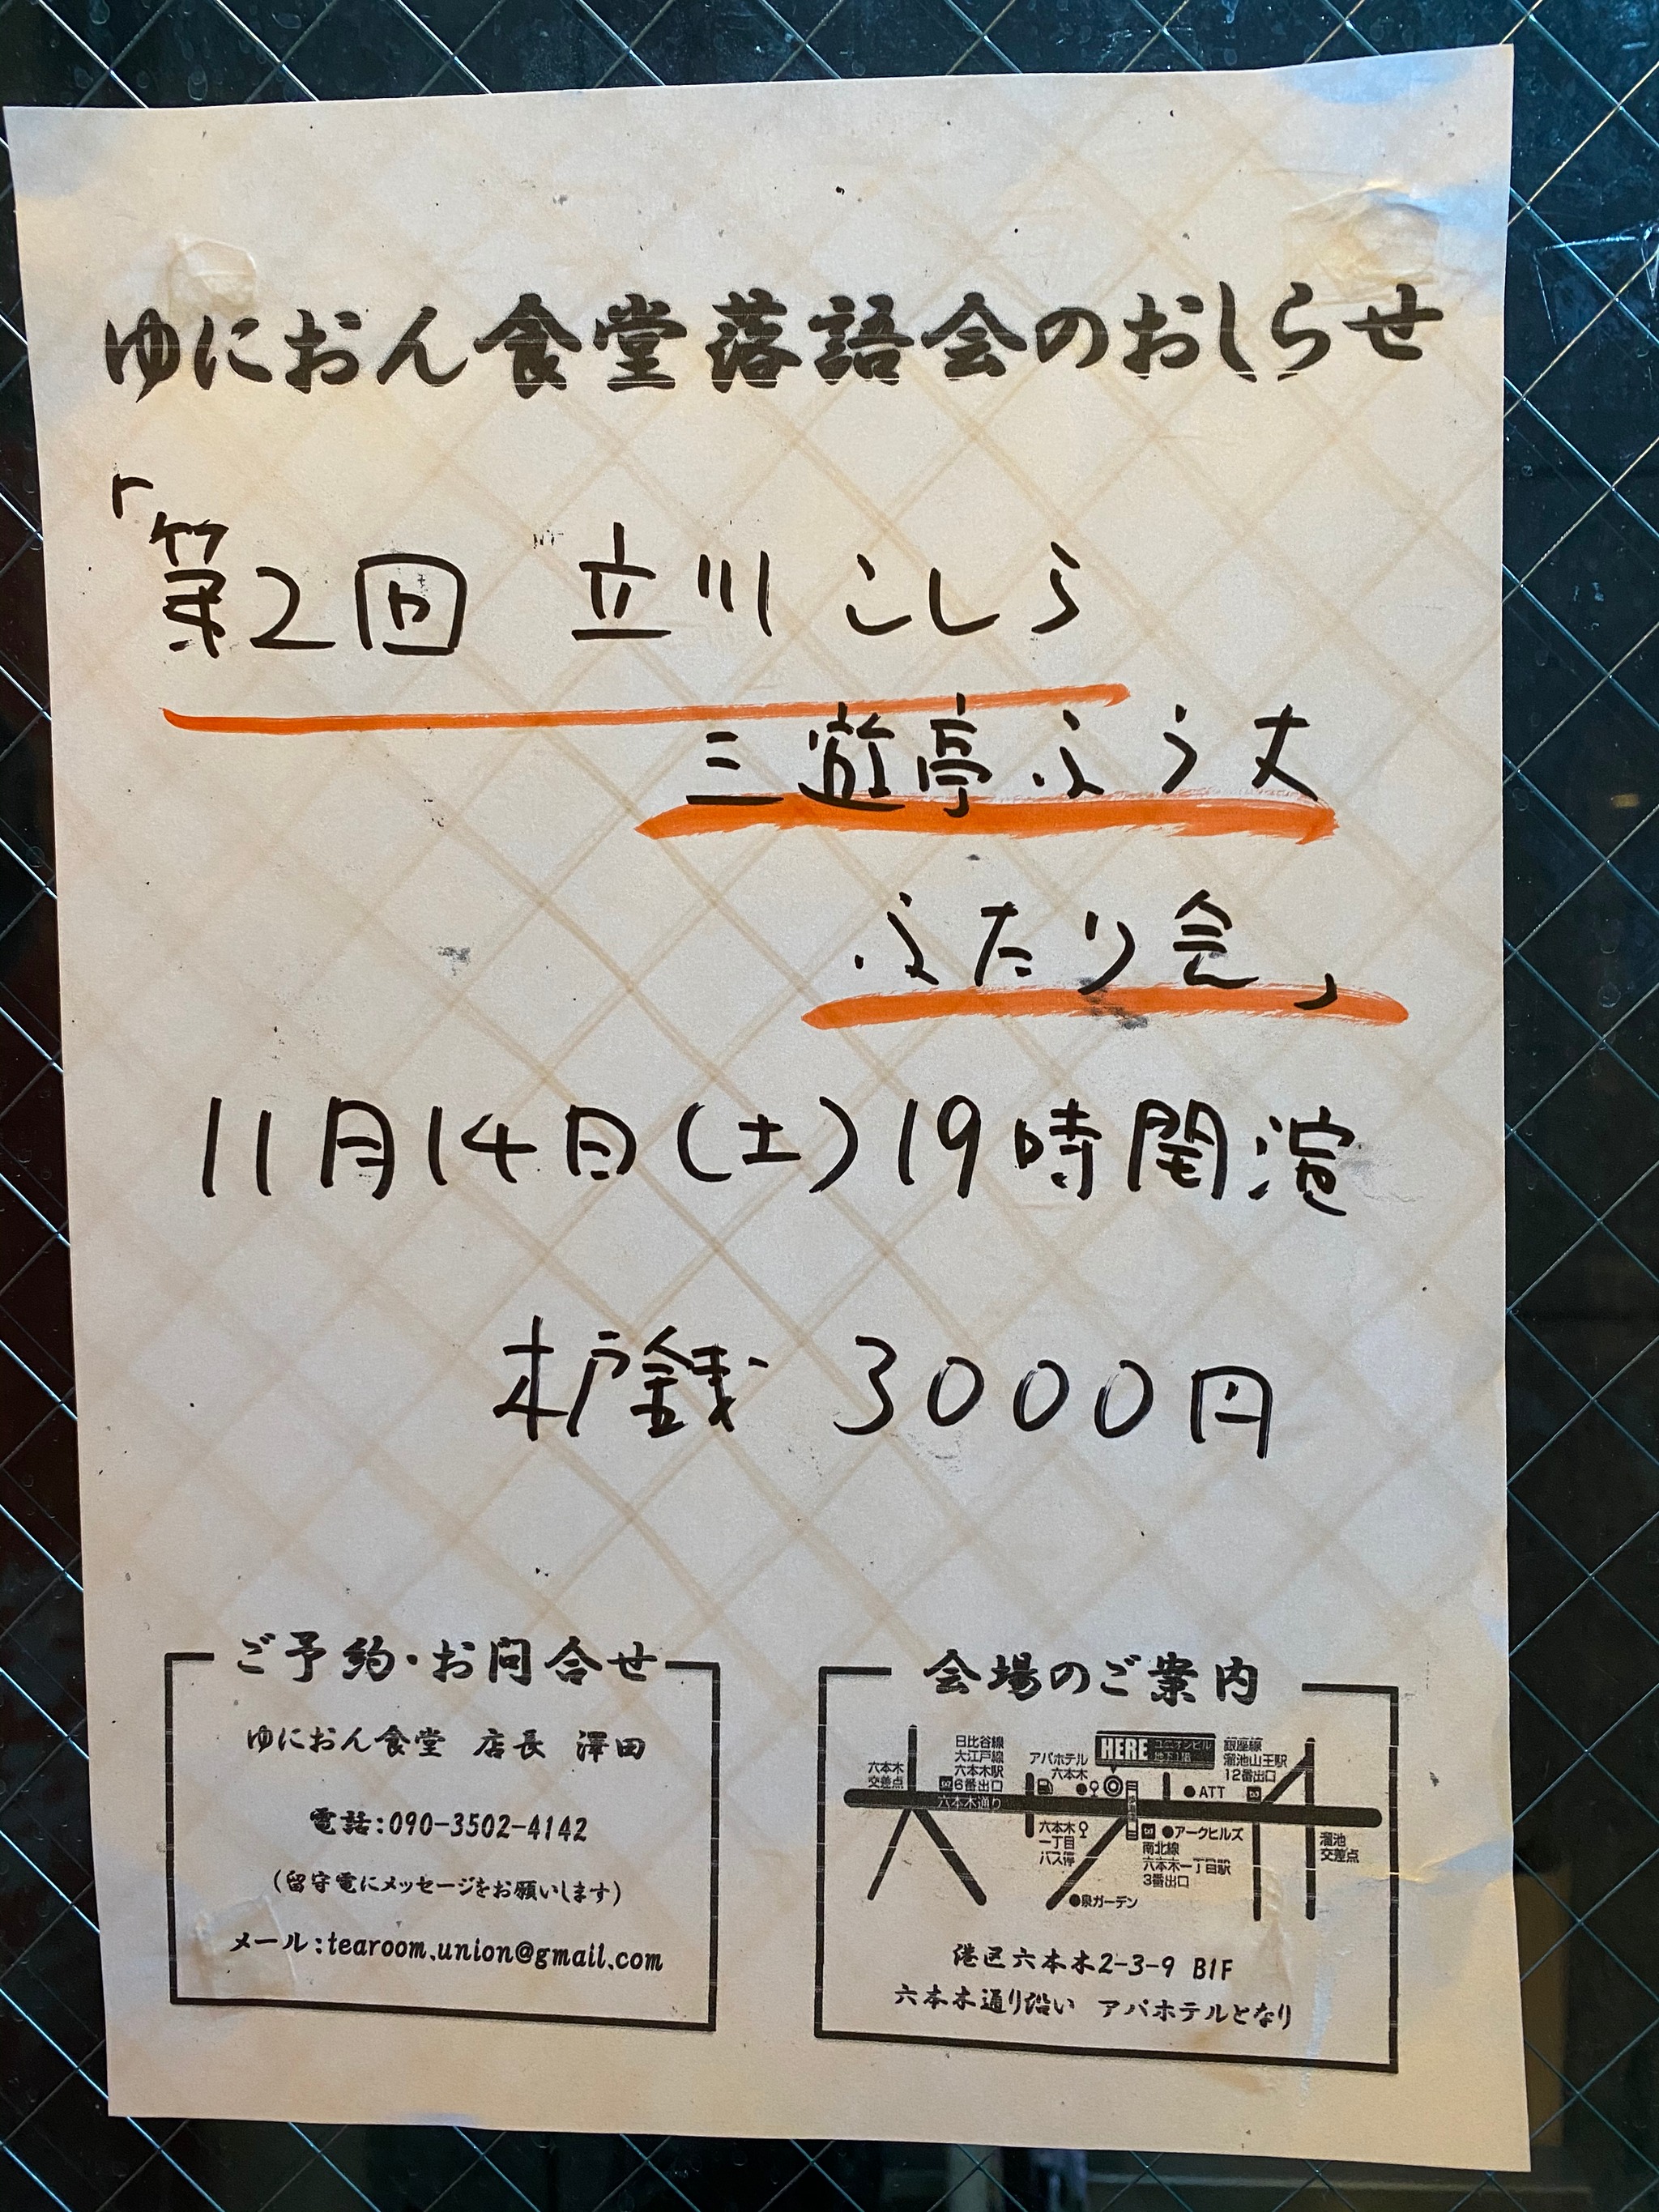 ゆにおん食堂落語会のおしらせ
「第2回 立川こしら
三遊亭ふう丈
ふたり会」
11月14日(土)19時開演
木戸銭 3000円
ご予約・お問合せ
ゆにおん食堂 店長 澤田
電話:090-3502-4142
(留守電にメッセージをお願いします)
メール:tearoom.union@gmail.com
会場のご案内
六本木
交差点
日比谷線
大江戸線
六本木駅
6番出口
アパホテル
六本木
HERE
ユニオンビル
地下1階
銀座線
溜池山王駅
12番出口
ATT
六本木通り
六本木
一丁目
バス停
アークヒルズ
南北線
六本木一丁目駅
3番出口
溜池
交差点
泉ガーデン
港区六本木2-3-9 B1F
六本木通り沿い アパホテルとなり